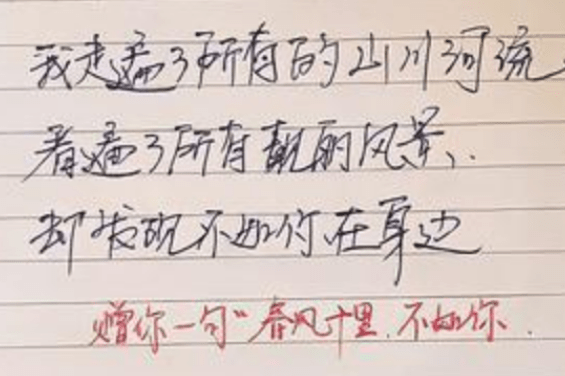 我走遍了所有的山川河流
看遍了所有靓丽风景、
却发现不如你在身边
赠你一句"春风十里,不如你.